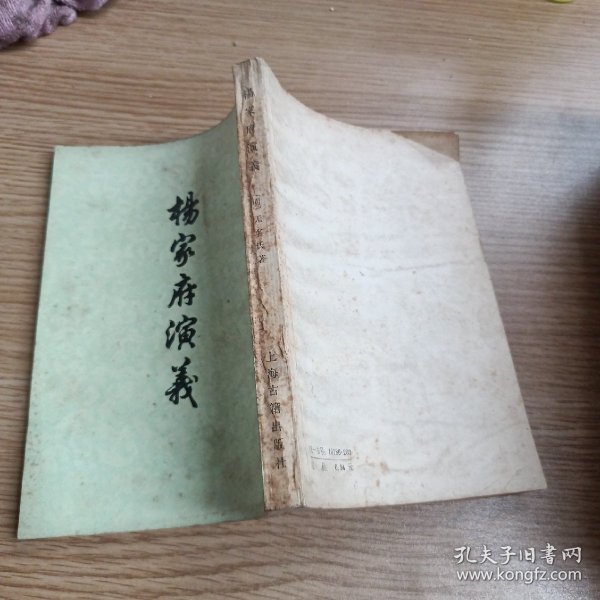 楊家府演義
楊家府演義
无名氏著
上海古籍出版社
孔夫子旧书网
www.kongfz.com